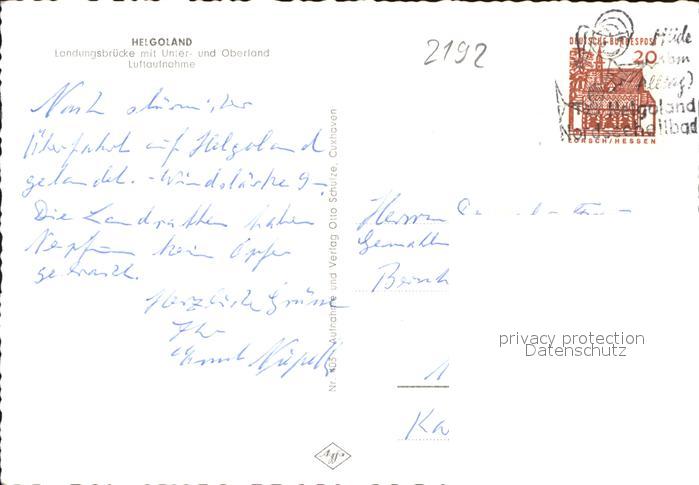 HELGOLAND
Landungsbrücke mit Unter- und Oberland
Luftaufnahme
2192
DEUTSCHE BUNDESPOST
20
LORSCH/HESSEN
Müde
vom
Alltag?
Helgoland
Nordseeheilbad
Nach stürmischer
Überfahrt auf Helgoland
gelandet. - Windstärke 9 -.
Die Landratten haben
Neptun kein Opfer
gebracht.
Herzliche Grüße
Ihr
Herrn
Gemahlin
Ka
Aufnahme und Verlag Otto Schulze, Cuxhaven
Agfa
privacy protection
Datenschutz